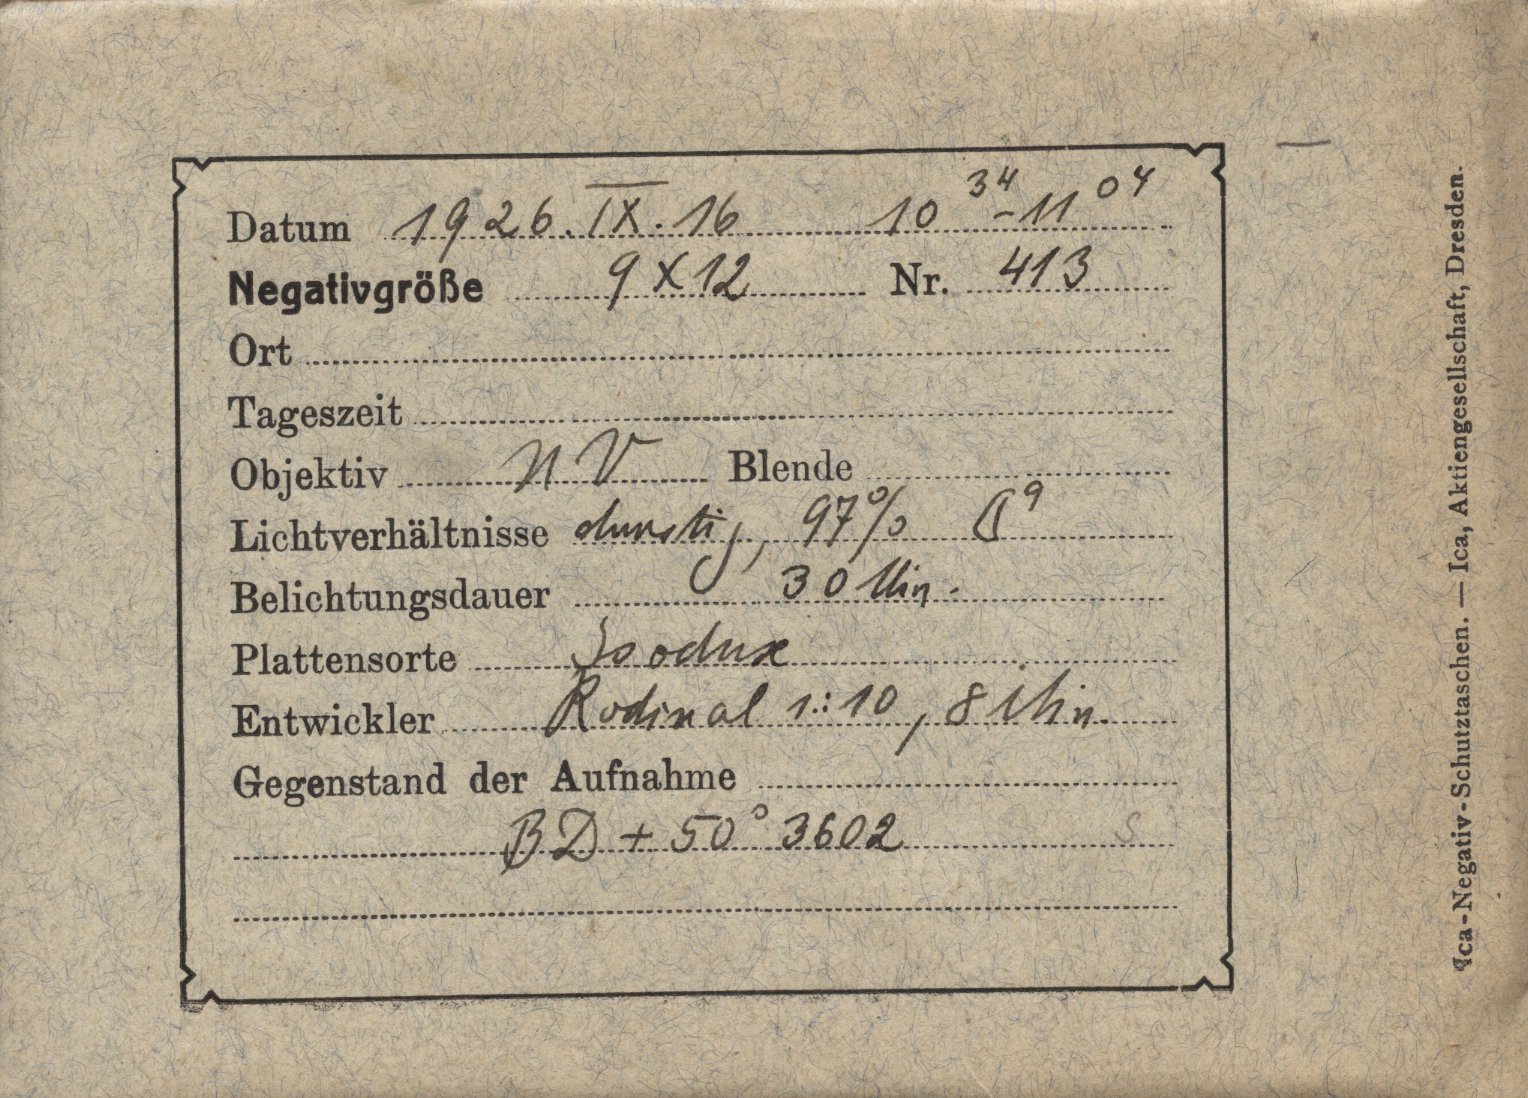 Datum 1926.IX.16 10 34 - 11 04
Negativgröße 9 X 12 Nr. 413
Ort
Tageszeit
Objektiv NV Blende
Lichtverhältnisse dunstig, 97%
Belichtungsdauer 30 Min.
Plattensorte Isodux
Entwickler Rodinal 1:10, 8 Min.
Gegenstand der Aufnahme
BD + 50° 3602 S
Ica-Negativ-Schutztaschen. — Ica, Aktiengesellschaft, Dresden.